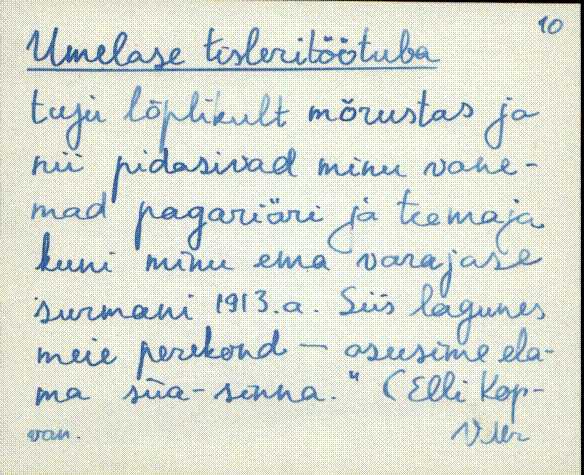 10
Umelase tisleritöötuba
tuju lõplikult mõrustas ja
nii pidasivad minu vane-
mad pagariäri ja teemaja
kuni minu ema varajase
surmani 1913.a. Siis lagunes
meie perekond — asusime ela-
ma siia-sinna." (Elli Kop-
van.